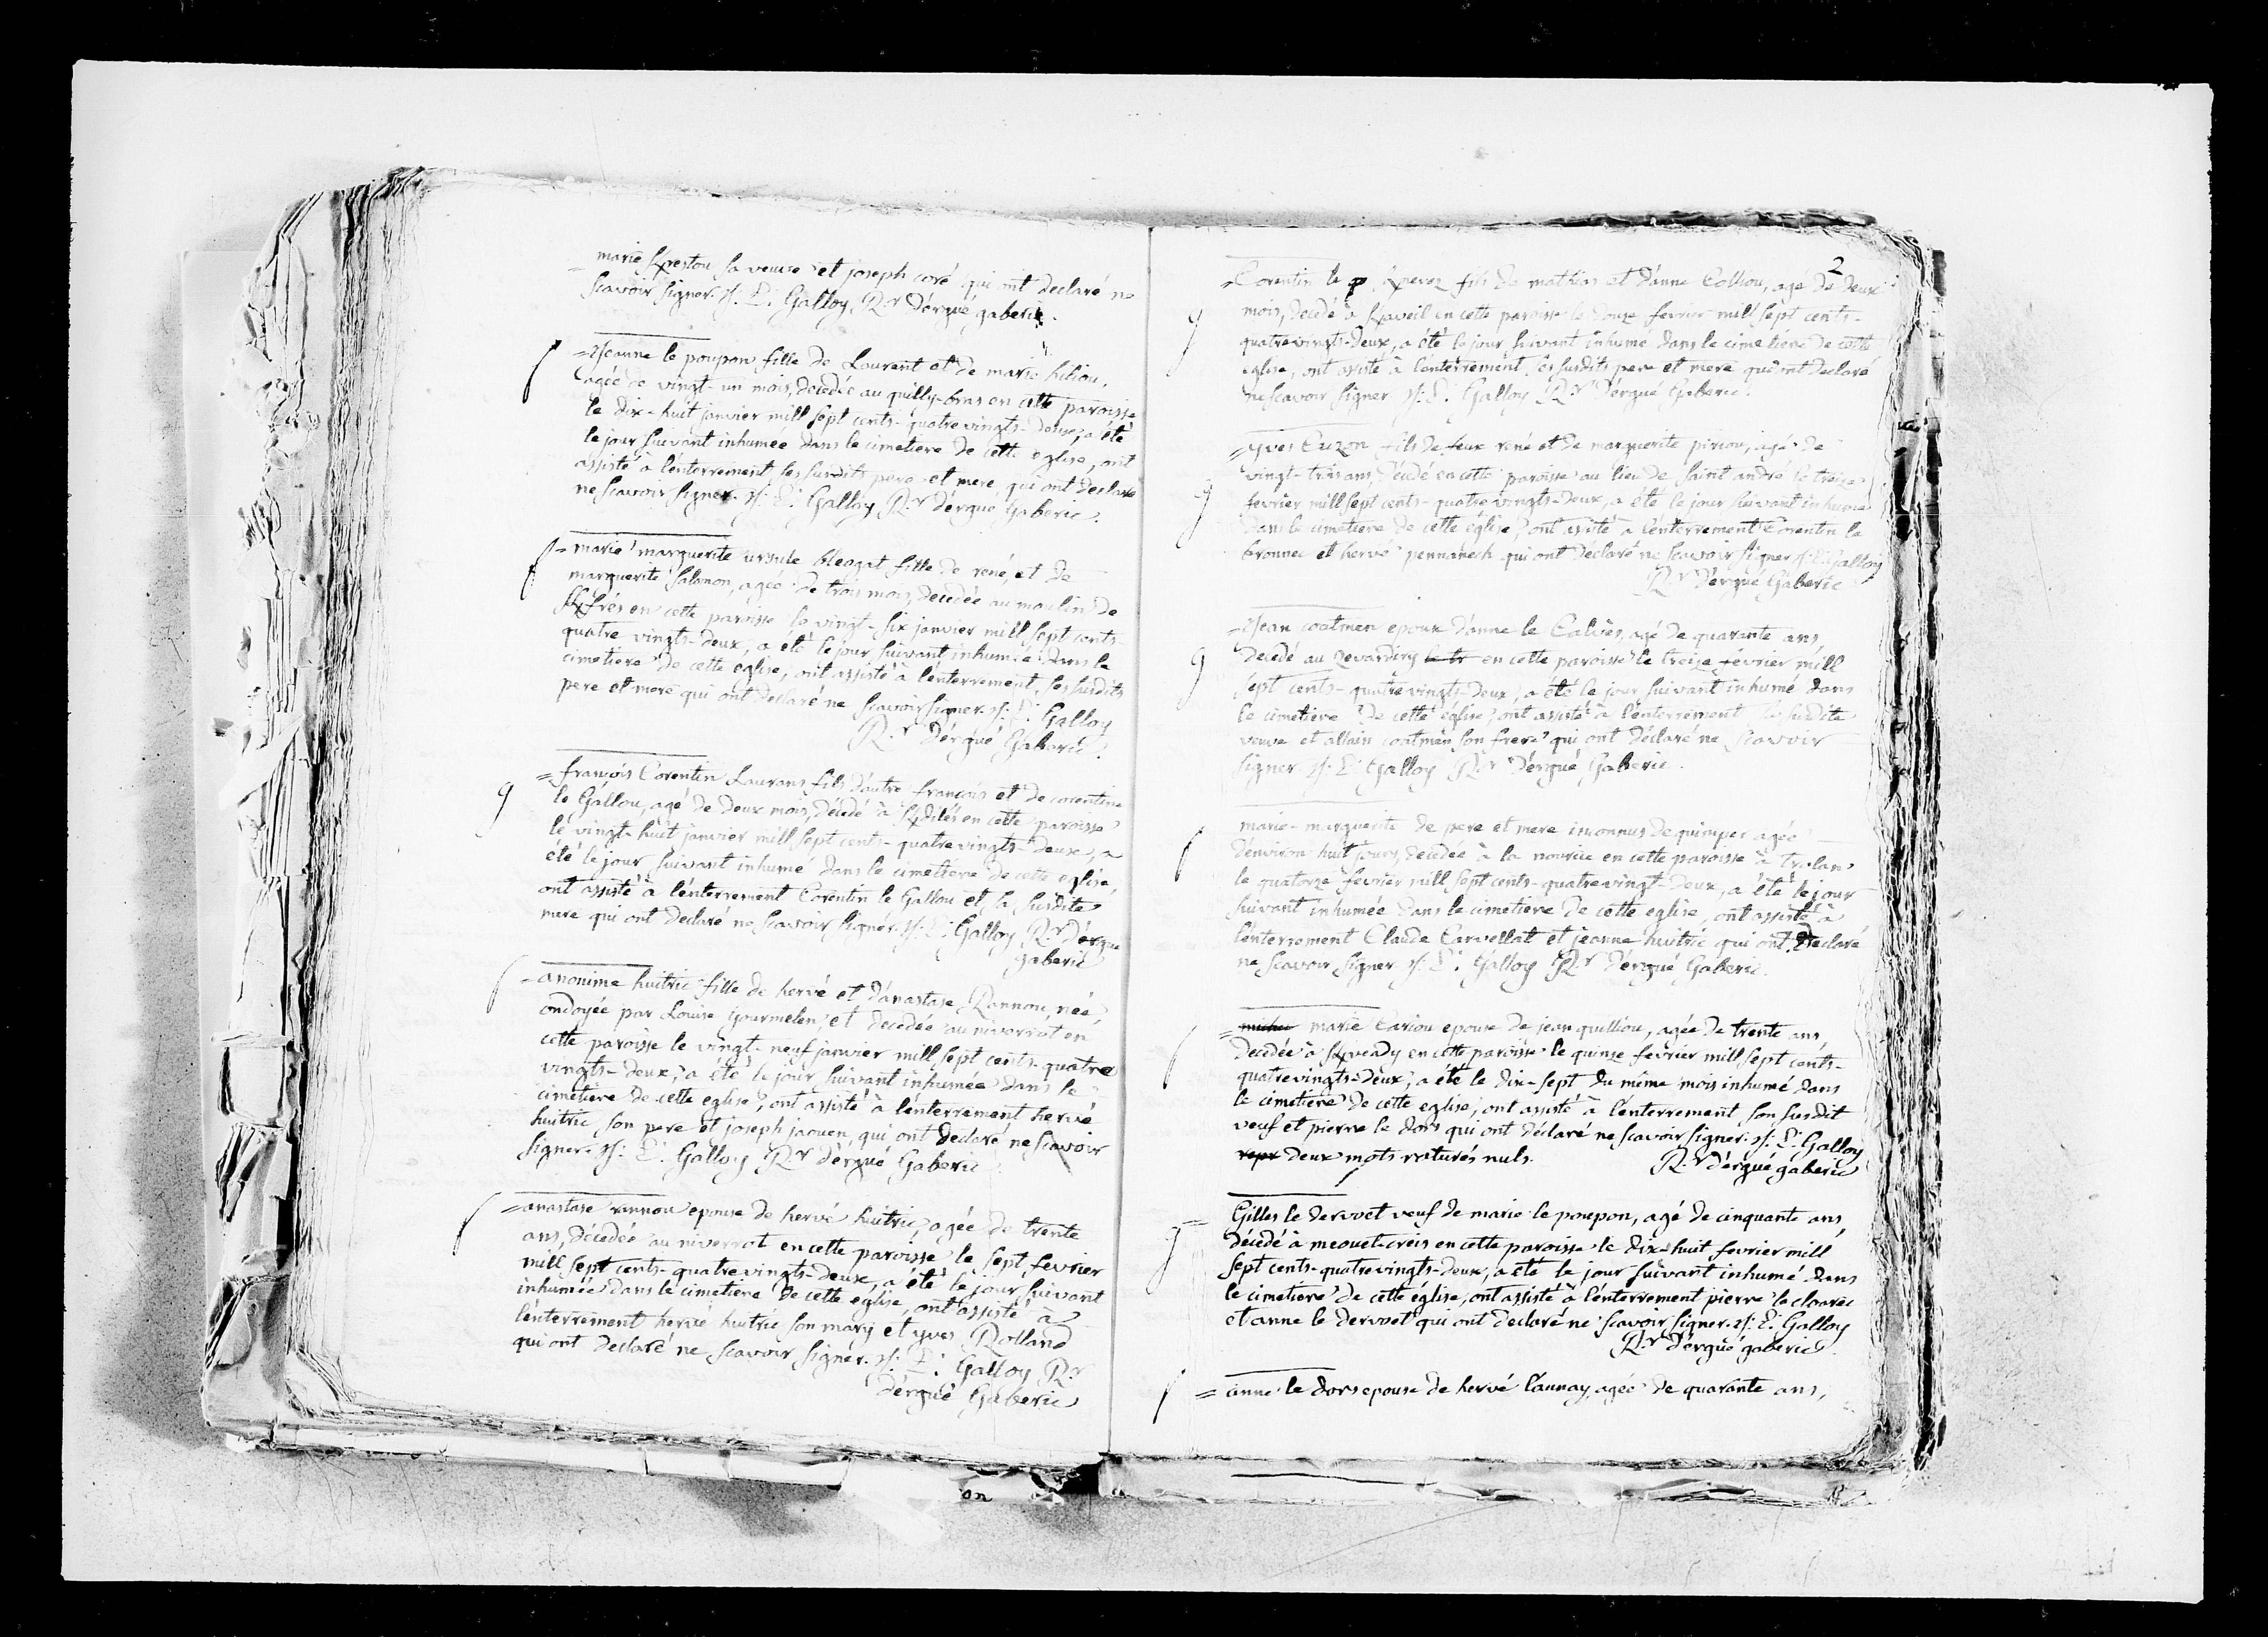 marie Kprestou sa veuve et joseph coré qui ont declaré ne
scavoir signer. s/: L: Galloy, R.r d'ergué gaberic.
=Jeanne le poupon fille de Laurent et de marie hiliou,
agée de vingt-un mois, decedée au quilly-bras en cette paroisse
le dix-huit janvier mill sept cents-quatre vingts-deux, a été
le jour suivant inhumée dans le cimetiere de cette eglise, ont
assisté à l'enterrement ses susdits pere et mere, qui ont declaré
ne scavoir signer. s/: L: Galloy, R.r d'ergué Gaberic.
= marie marguerite ursule bleogat fille de rené, et de
marguerite Salomon, agée de trois mois, decedée au moulin de
Kfrés en cette paroisse le vingt-six janvier mill sept cents
quatre vingts-deux, a été le jour suivant inhumée dans le
cimetiere de cette eglise, ont assisté à l'enterrement, ses susdits
pere et mere qui ont declaré ne scavoir signer. s/: L: Galloy
R.r d'ergué Gaberic.
= françois Corentin Laurans fils d'autre françois et de corentine
le Gallou, agé de deux mois, décédé à Kdilés en cette paroisse
le vingt-huit janvier mill sept cents-quatre vingts-deux, a
été le jour suivant inhumé dans le cimetiere de cette eglise,
ont assisté à l'enterrement Corentin le Gallou et la susdite
mere qui ont declaré ne scavoir signer. s/: L: Galloy R.r d'ergué
gaberic
=anonime huitric fille de hervé et d'anastase Rannou, née
ondoyée par Louise gourmelen, et decedée au niverrot en
cette paroisse le vingt-neuf janvier mill sept cents-quatre
vingts-deux, a été le jour suivant inhumée dans le
cimetiere de cette eglise, ont assisté à l'enterrement hervé
huitric son pere et joseph jaouen, qui ont declaré ne scavoir
signer. s/: L: Galloy R.r d'ergué Gaberic
=anastase rannou epouse de hervé huitric, agée de trente
ans, décedée au niverrot en cette paroisse le sept fevrier
mill sept cents-quatre vingts-deux, a été le jour suivant
inhumée dans le cimetiere de cette église, ont assisté à
l'enterrement hervé huitric son mary et yves Rolland
qui ont declaré ne scavoir signer. s/: L: Galloy R.r
d'ergué Gaberic
2
=Corentin le Kperez fils de mathias et d'anne Colliou, agé de deux
mois, decedé à Kaveil en cette paroisse le douze fevrier mill sept cents-
quatre vingts-deux, a été le jour suivant inhumé dans le cimetiere de cette
eglise, ont assisté à l'enterrement, ses susdits pere et mere qui ont declaré
ne scavoir signer s/: L: Galloy R.r d'ergué Gaberic.
=yves Euzon fils de feux rené et de marguerite piriou, agé de
vingt-trois ans, decedé en cette paroisse au lieu de Saint andré le treize
fevrier mill sept cents-quatre vingts-deux, a été le jour suivant inhumé
dans le cimetiere de cette eglise, ont assisté à l'enterrement Corentin le
bronnec et hervé pennanech qui ont declaré ne scavoir signer s/: L: Galloy
R.r d'ergué Gaberic
=Jean coatmen epoux d'anne le Calvès, agé de quarante ans,
decedé au quevardiry le tr en cette paroisse le treize février mill
sept cents-quatre vingts-deux, a été le jour suivant inhumé dans
le cimetiere de cette église, ont assisté à l'enterrement sa susdite
veuve et allain coatmen son frere qui ont déclaré ne scavoir
signer s/: L: Galloy R.r d'ergué Gaberic.
marie-marguerite de pere et mere inconnus de quimper agée
d'environ huit jours, decedée à la nourice en cette paroisse à trolan
le quatorze fevrier mill sept cents-quatre vingt-deux, a été le jour
suivant inhumée dans le cimetiere de cette eglise, ont assisté à
l'enterrement Claude Carvellat et jeanne huitric qui ont declaré
ne scavoir signer s/: L: Galloy R.r d'ergué Gaberic.
= marie Cariou epouse de jean quilliou, agée de trente ans,
decedée à Kvendy en cette paroisse le quinze fevrier mill sept cents-
quatre vingts-deux, a été le dix-sept du même mois inhumé dans
le cimetiere de cette eglise, ont assisté à l'enterrement son susdit
veuf et pierre le dors qui ont déclaré ne scavoir signer. s/: L: Galloy
deux mots raturés nuls. R.r d'ergué gaberic
= Gilles le dervoet veuf de marie le poupon, agé de cinquante ans,
décédé à meouet-creis en cette paroisse le dix-huit fevrier mill
sept cents-quatre vingts-deux, a été le jour suivant inhumé dans
le cimetiere de cette église, ont assisté à l'enterrement pierre le cloarec
et anne le dervoet qui ont declaré ne scavoir signer. s/: L: Galloy
R.r d'ergué gaberic.
= anne le dors epouse de hervé launay, agée de quarante ans,